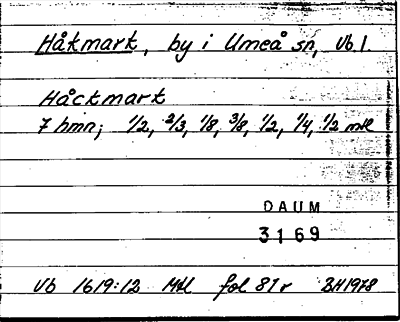 Håkmark, by i Umeå sn, Vb. l.
Håckmark
7 hmn; 1/2, 2/3, 1/8, 3/8, 1/2, 1/4, 1/2 mtl
DAUM
3169
Vb 1619:12 Mtl fol 81 r BH1978